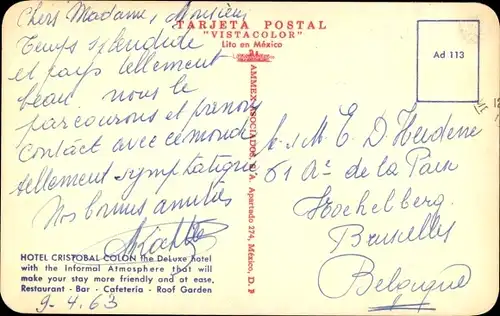 Chers Madame, Monsieur
Temps splendide
et pays tellement
beau nous le
parcourons et prenons
contact avec ce monde
tellement sympathique
Nos bonnes amitiés
TARJETA POSTAL
"VISTACOLOR"
Lito en México
AMMEX ASOCIADOS, S. A. Apartado 274, México, D. F.
Ad 113
M E D
61 Ae de la Paix
Bruxelles
Belgique
HOTEL CRISTOBAL COLON the DeLuxe hotel
with the Informal Atmosphere that will
make your stay more friendly and at ease.
Restaurant - Bar - Cafetería - Roof Garden
9-4.63